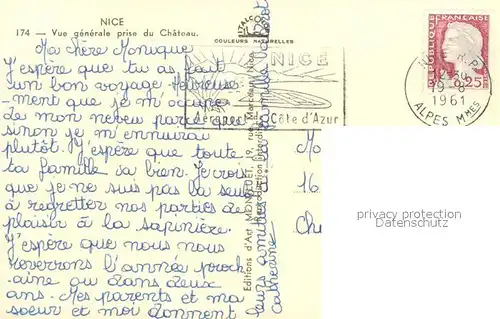 NICE
174 — Vue générale prise du Château.
COULEURS NATURELLES
Ma chère Monique
J'espère que tu as fait
un bon voyage. Heureuse-
ment que je m'occupe
de mon neveu parce que
sinon je m'ennuirai
plutôt. J'espère que toute
ta famille va bien. Je crois
que je ne suis pas la seule
à regretter nos parties de
plaisir à la sapinière.
J'espère que nous nous
reverrons l'année proch-
aine ou dans deux
ans. Mes parents et ma
soeur et moi donnent
leurs amitiés à la famille
Catherine
Editions d'Art MUNIER, 19, rue
Reproduction interdite
NICE
Côte d'Azur
REPUBLIQUE FRANÇAISE
0,25
19-9
1961
ALPES MMES
Mo
16
Ch
privacy protection
Datenschutz